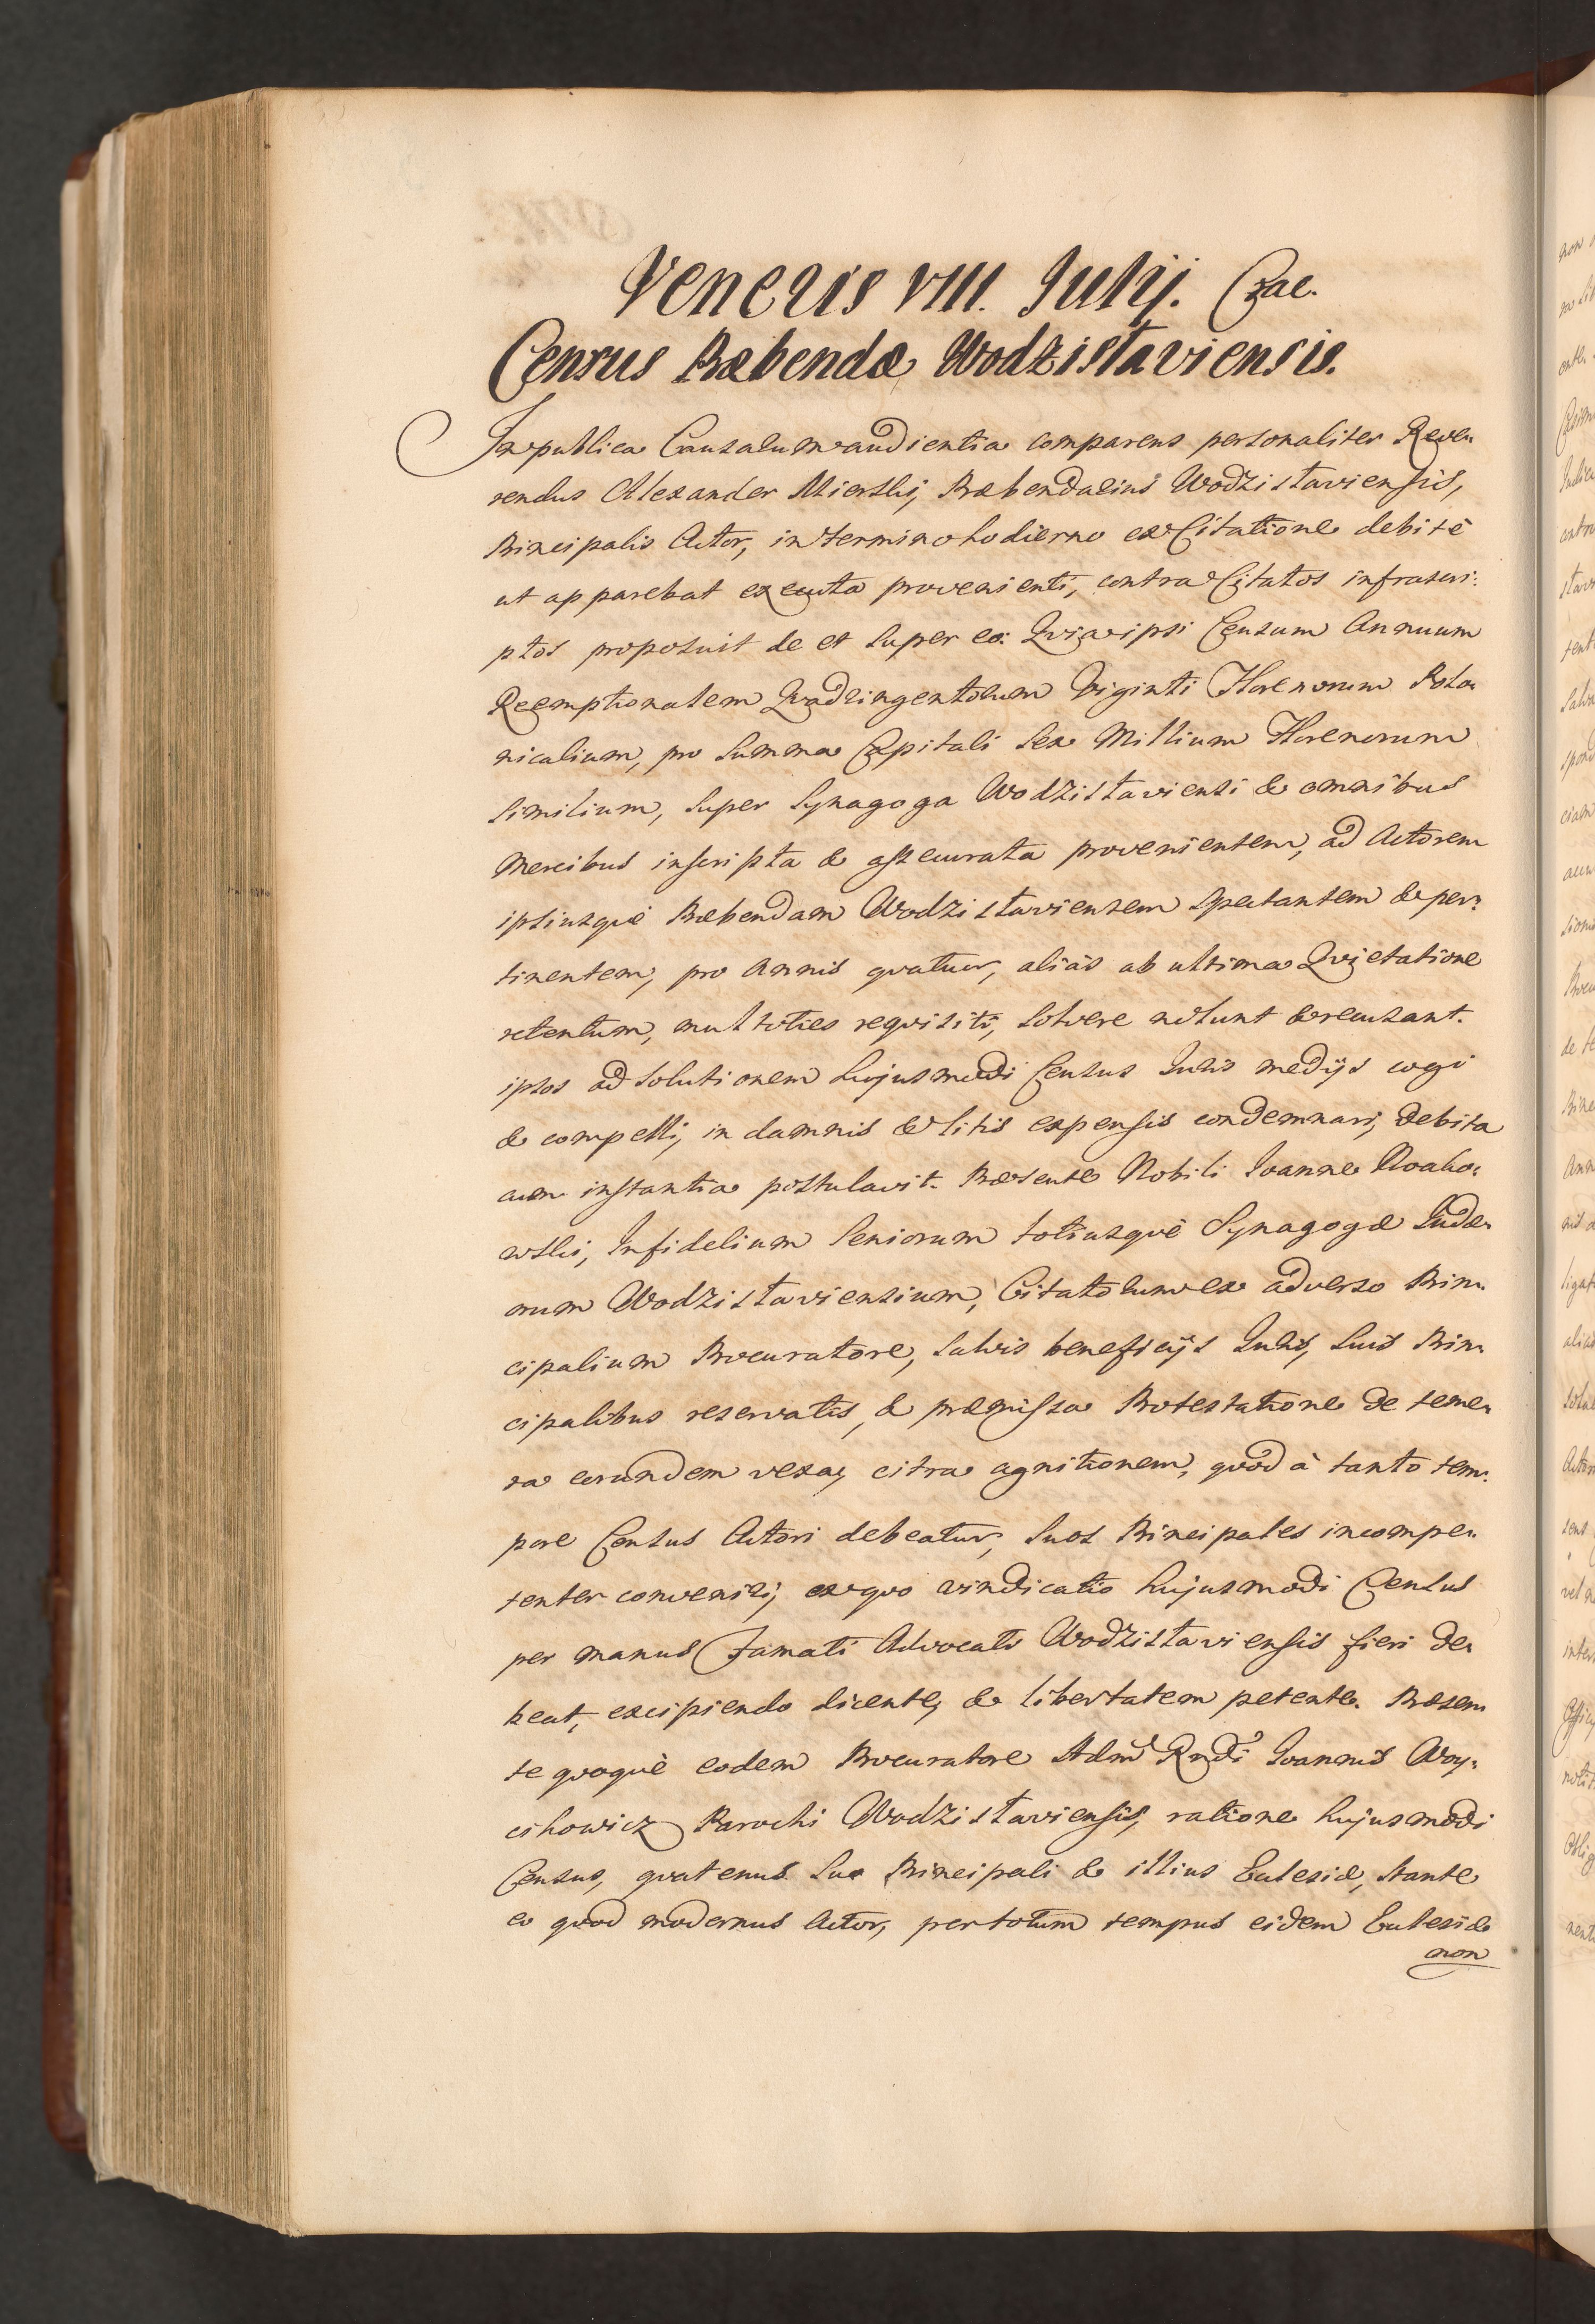 Veneris VIII. Julij. Crac.
Census Præbendæ Wodzislaviensis.
In publica Causarum audientia comparens personaliter Reve=
rendus Alexander Mierski, Præbendarius Wodzislaviensis,
Principalis Actor, in termino hodierno ex Citatione debitè
ut apparebat executa provenienti, contra Citatos infrascri=
ptos proposuit de et super eo: Qvia ipsi Censum Annuum
Reemptionalem Qvadringentorum Viginti Florenorum Polo=
nicalium, pro Summa Capitali Sex Millium Florenorum
similium, super Synagoga Wodzislaviensi & omnibus
Mercibus inscripta & assecurata provenientem, ad Actorem
ipsiusqvè Præbendam Wodzislaviensem spectantem & per=
tinentem, pro Annis qvatuor, aliàs ab ultima Qvietatione
retentum, multoties reqvisiti, solvere nolunt & recusant.
ipsos ad solutionem hujusmodi Census Juris medijs cogi
& compelli, in damnis & litis expensis condemnari, debita
cum instantia postulavit. Præsente Nobili Joanne
Infidelium Seniorum totiusqvè Synagogæ Judæ=
orum Wodzislaviensium, Citatorum ex adverso Prin=
cipalium Procuratore, salvis beneficijs Juris, suis Prin=
cipalibus reservatis, & præmissa Protestatione de teme=
ra eorundem vexa, citra agnitionem, qvod à tanto tem=
pore Census Actori debeatur, suos Principales incompe=
tenter conveniri, ex qvo vindicatio hujusmodi Census
per manus Famati Advocati Wodzislaviensis fieri de=
beat, excipiendo dicente, & libertatem petente. Præsen=
te qvoqvè eodem Procuratore Adm Rndi Joannis Woy=
cihowicz Parochi Wodzislaviensis, ratione hujusmodi
Census, qvatenus suo Principali & illius Ecclesiæ, stante
eo qvod modernus Actor, per totum tempus eidem Ecclesiæ
non